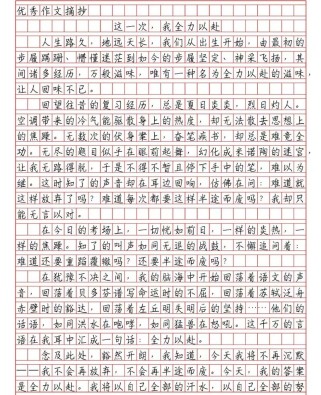 优秀作文摘抄
这一次，我全力以赴
人生路久，地远天长，我们从出生开始，由最初的
步履蹒跚，懵懂迷茫到如今的步履坚定，神采飞扬，其
间诸多经历，万般滋味，唯有一种名为全力以赴的滋味，
让人回味不已。
回望往昔的复习经历，总是夏日炎炎，烈日灼人。
空调带来的冷气能驱散身上的热度，却无法散去思想上
的焦躁。无数次的伏身案上，奋笔疾书，却总是难竟全
功。无尽的题目似乎在眼前起舞，幻化成米诺陶的迷宫，
让我无路得脱，于是不得不暂且停下手中的笔，难以为
继。这时知了的声音却在耳边回响，仿佛在问：难道就
这样放弃了吗？难道每次都要这样半途而废吗？我却只
能无言以对。
在今日的考场上，一切恍如前日，一样的炎热，一
样的焦躁。知了的叫声如同无退的战鼓，不懈追问着：
难道还要重蹈覆辙吗？还要半途而废吗？
在犹豫不决之间，我的脑海中开始回荡着语文的声
音，回荡着贝多芬谱写命运时的不屈，回荡着苏轼泛舟
赤壁时的豁达，回荡着左丘明失明后的坚持……他们的
话语，如同洪水在咆哮，如同猛兽在怒吼。这千万的言
语在我耳中汇成一句话：全力以赴。
念及此处，豁然开朗，我知道，今天我将不再沉默
——我不会再放弃，不会再半途而废。今天，我的答案
是全力以赴。我将以自己全部的汗水，以自己全部的努